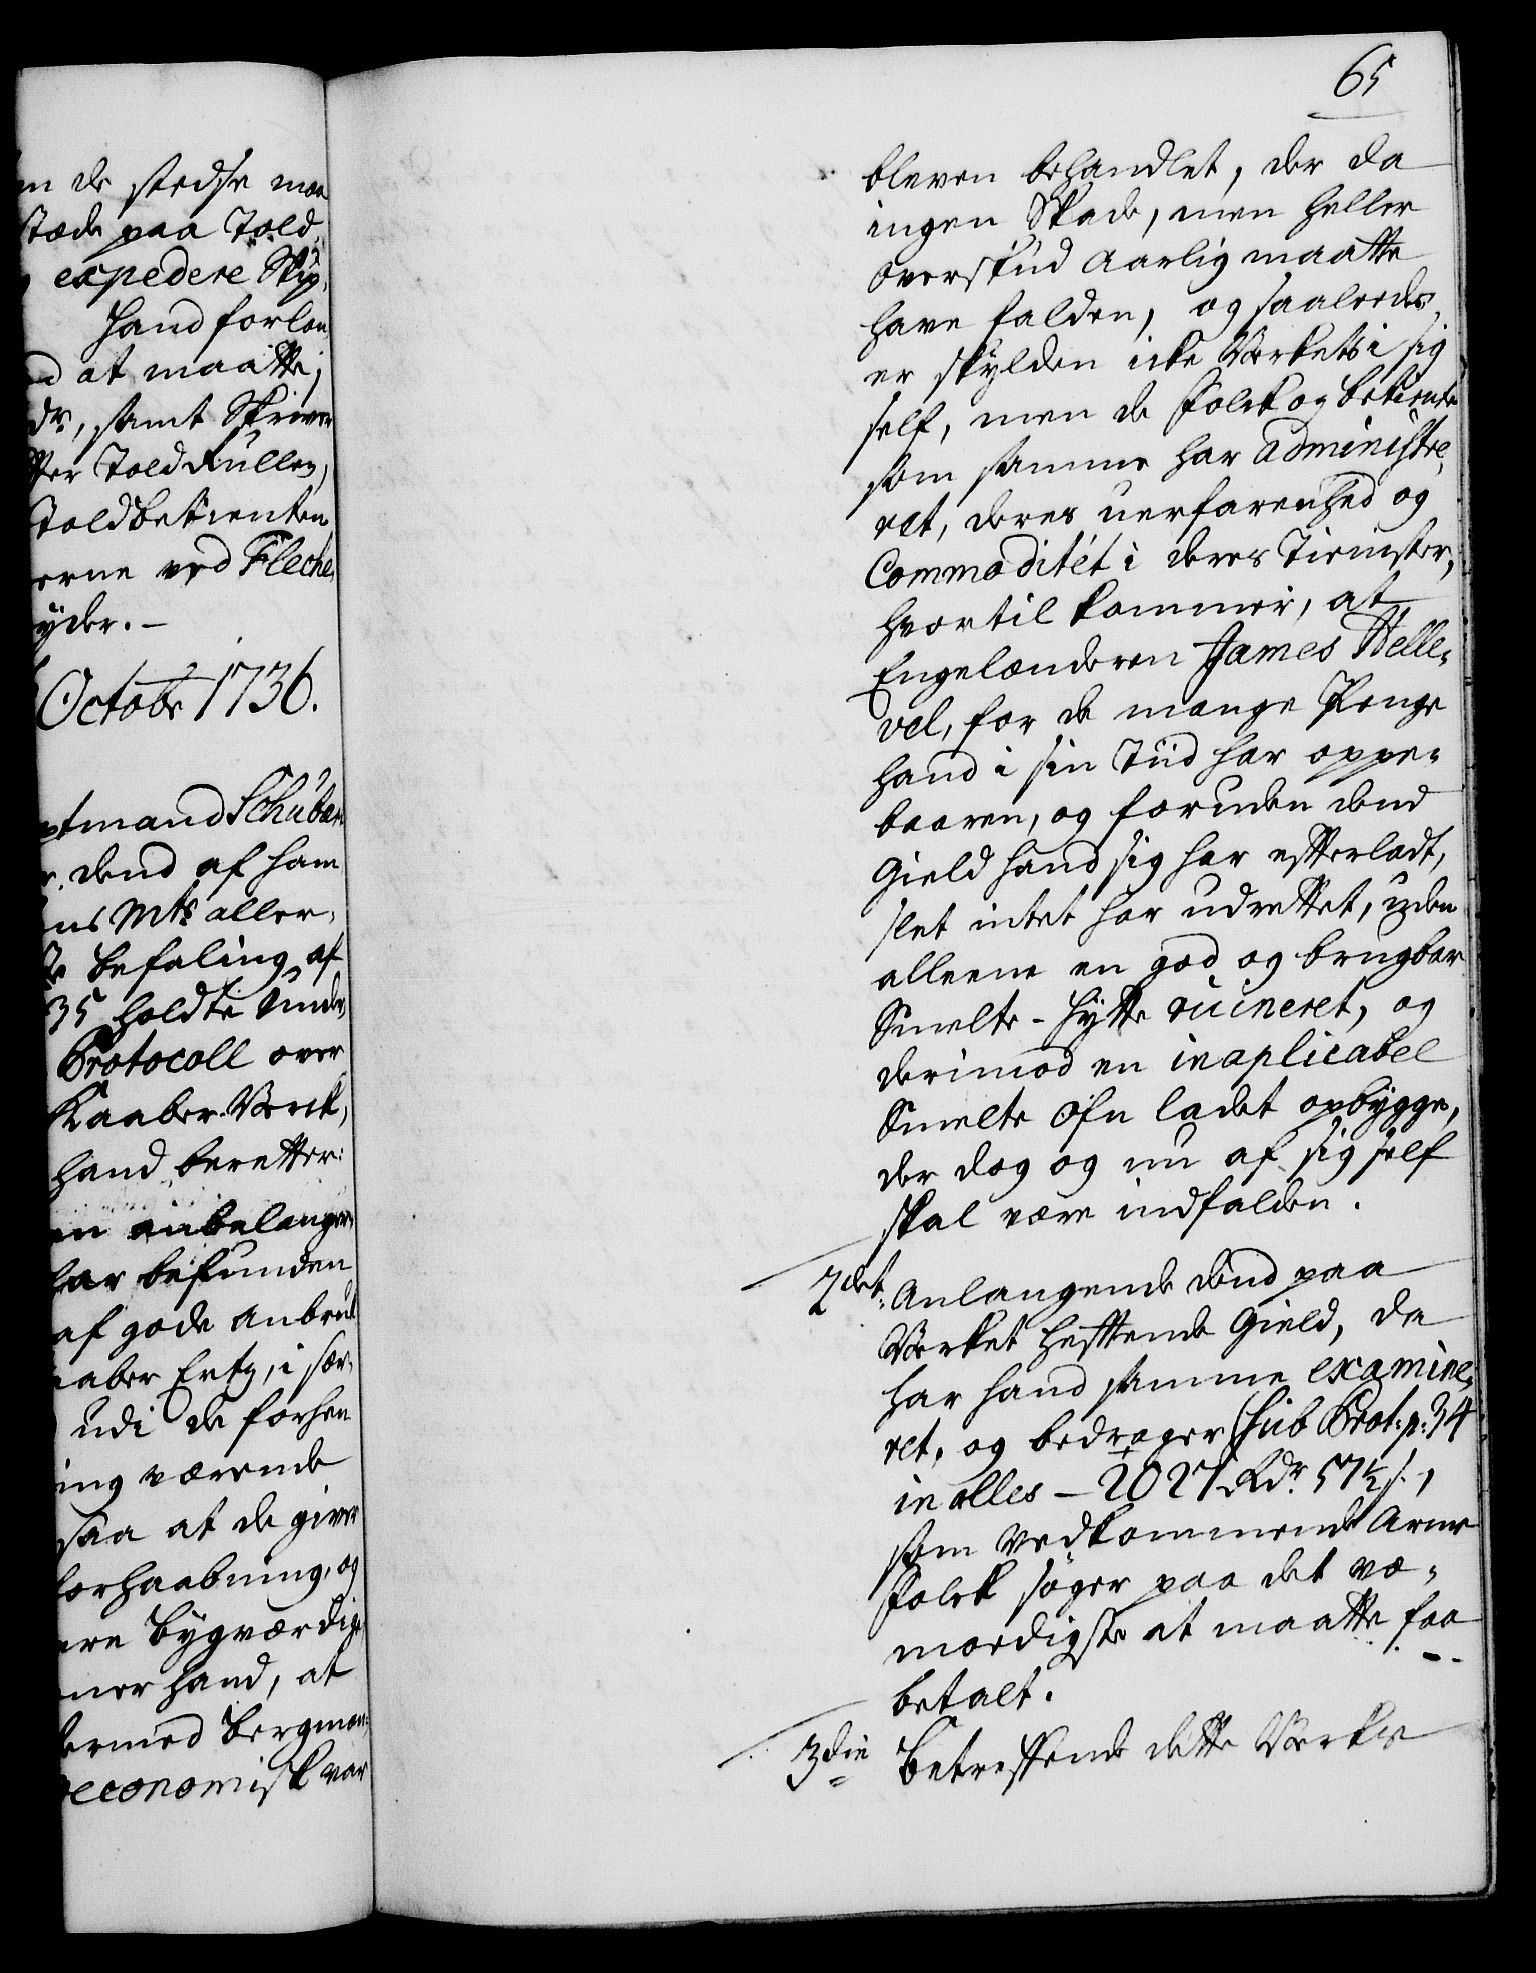 en de stedse maa
stæde paa Told
expedere Skip,
Hand forlan
d at maatte,
dr, samt Skriver
ter Told Rullen,
Toldbetienten
erne ved Fleche,
ÿder. -
Octobr 1736.
ptmand Schubar
r. dend af ham
ns Mts aller,
te befaling af
35 holdte Under,
Protocoll over
Kaaber-Verck,
hand beretter:
en anbelanger,
lar befunden
af gode anbrud
aaber Ertz, i sær,
udi de forhen
ing værende
saa at de giver
forhaabning, og
ere bÿgværdig
ner hand, at
dermed bergman,
oeconomisk var
65
bleven behandlet, der da
ingen Skade, men heller
overskud aarlig maatte
have falden, og saaleedes
er skÿlden icke Verkets i sig
self, men de Folck og betiente
som samme har administre,
ret, deres uerfarenhed og
Commoditét i deres Tienister,
hvortil kommer, at
Engelænderen James Helle,
vel, for de mange Penge
hand i sin Tiid har oppe,
baaren, og foruden dend
Gield hand sig har efterladt,
slet intet har udrettet, uden
alleene en god og brugbar
Smelte-Hÿtte ruineret, og
derimod en inaplicabel
Smelte Ofn ladet opbÿgge,
der dog og nu af sig self
skal være indfalden.
2det: Anlangende dend paa
Verket hefftende Gield, da
har hand samme examine,
ret, og bedrager (sub Prot: p: 34
in alles - 2027 Rdr. 57½ s.,
som vedkommende Arme
Folck søger paa det ve,
mordigste at maatte faa
betalt.
3die Betreffende dette Verkes